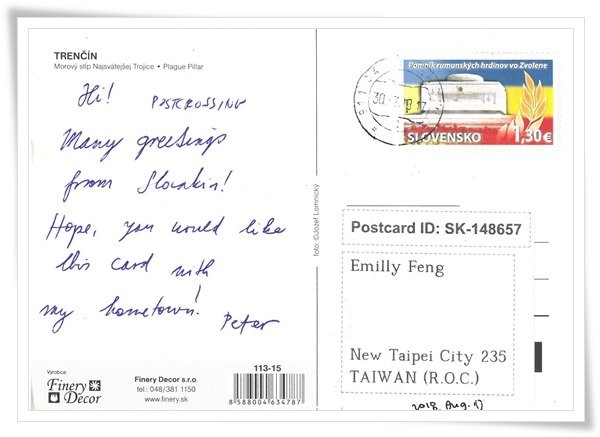 TRENČÍN
Morový stĺp Najsvätejšej Trojice • Plague Pillar
Hi! POSTCROSSING
Many greetings
from Slovakia!
Hope, you would like
this card with
my hometown!
Peter
Výrobca:
Finery
Decor
Finery Decor s.r.o.
tel.: 048/381 1150
www.finery.sk
113-15
8588004634787
foto ©Jozef Lomnický
Pomník rumunských hrdinov vo Zvolene
SLOVENSKO 1,30€
Postcard ID: SK-148657
Emilly Feng
New Taipei City 235
TAIWAN (R.O.C.)
2018. Aug. 17